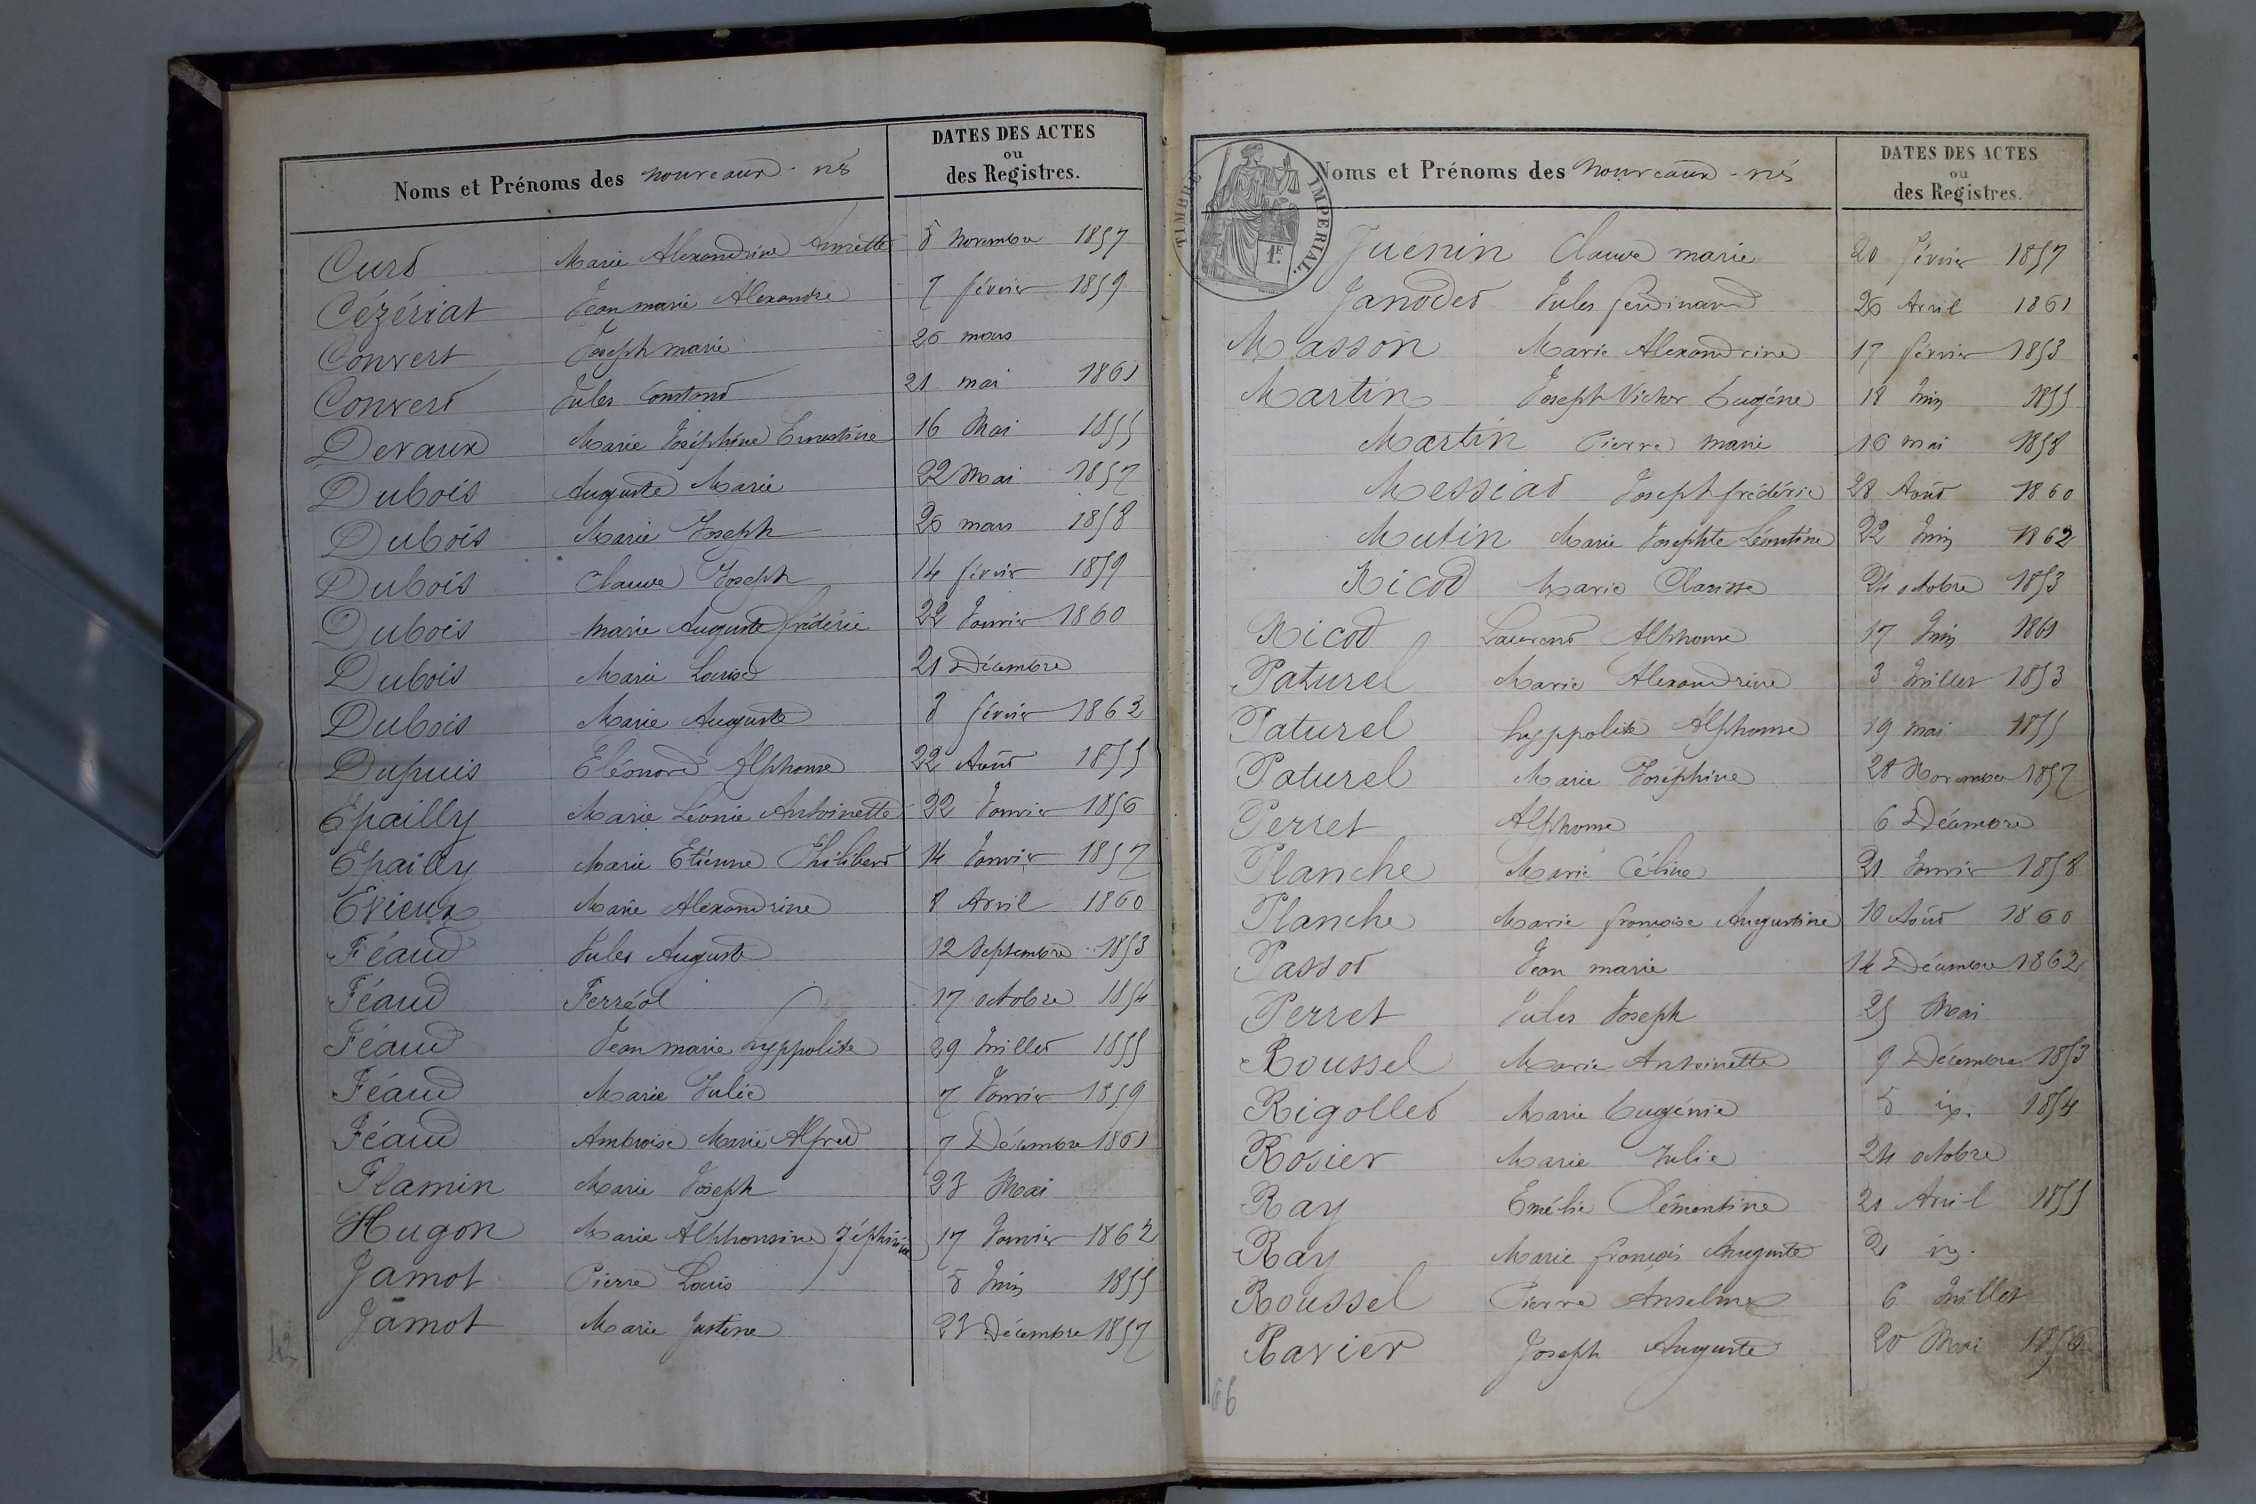 Noms et Prénoms des nouveaux-nés
DATES DES ACTES
ou
des Registres.
Curt Marie Alexandrine Annette 5 Novembre 1857
Cézériat Jean marie Alexandre 7 février 1859
Convert Joseph marie 26 mars
Convert Jules Constant 21 mai 1861
Devaux Marie Joséphine Ernestine 16 Mai 1855
Dubois Auguste Marie 22 Mai 1857
Dubois Marie Joseph 26 mars 1858
Dubois Claude Joseph 14 février 1859
Dubois Marie Auguste frédéric 22 Janvier 1860
Dubois Marie Louise 21 Décembre
Dubois Marie Auguste 8 février 1862
Dupuis Eléonord Alphonse 22 Août 1855
Epailly Marie Léonie Antoinette 22 Janvier 1856
Epailly Marie Etienne Philibert 14 Janvier 1857
Evieux Marie Alexandrine 8 Avril 1860
Féaud Jules Auguste 12 Septembre 1853
Féaud Ferréol 17 octobre 1854
Féaud Jean marie hyppolite 29 Juillet 1855
Féaud Marie Julie 7 Janvier 1859
Féaud Ambroise Marie Alfred 7 Décembre 1861
Flamin Marie Joseph 23 Mai
Hugon Marie Alphonsine Zéphirine 17 Janvier 1862
Jamot Pierre Louis 5 Juin 1855
Jamot Marie Justine 23 Décembre 1857
42
TIMBRE IMPERIAL.
1F.
Noms et Prénoms des Nouveaux-nés
DATES DES ACTES
ou
des Registres.
Juenin Claude marie 20 février 1857
Janodet Jules ferdinand 26 Avril 1861
Masson Marie Alexandrine 17 février 1853
Martin Joseph Victor Eugéne 18 Juin 1855
Martin Pierre Marie 16 mai 1858
Messiat Joseph frédéric 28 Août 1860
Mutin Marie Josephte Léontine 22 Juin 1862
Nicod Marie Clarisse 24 octobre 1853
Nicod Laurent Alphonse 17 Juin 1861
Paturel Marie Alexandrine 3 Juillet 1853
Paturel hyppolite Alphonse 19 mai 1855
Paturel Marie Joséphine 28 Novembre 1857
Perret Alphonse 6 Décembre
Planche Marie Céline 21 Janvier 1858
Planche Marie françoise Augustine 10 Août 1860
Passot Jean marie 14 Décembre 1862
Perret Jules Joseph 25 Mai
Roussel Marie Antoinette 9 Décembre 1853
Rigollet Marie Eugénie 5 1854
Rosier Marie Julie 24 octobre
Ray Emélie Clémentine 21 Avril 1855
Ray Marie françois Auguste 2
Roussel Pierre Anselme 6 Juillet
Ravier Joseph Auguste 20 Mai 1856